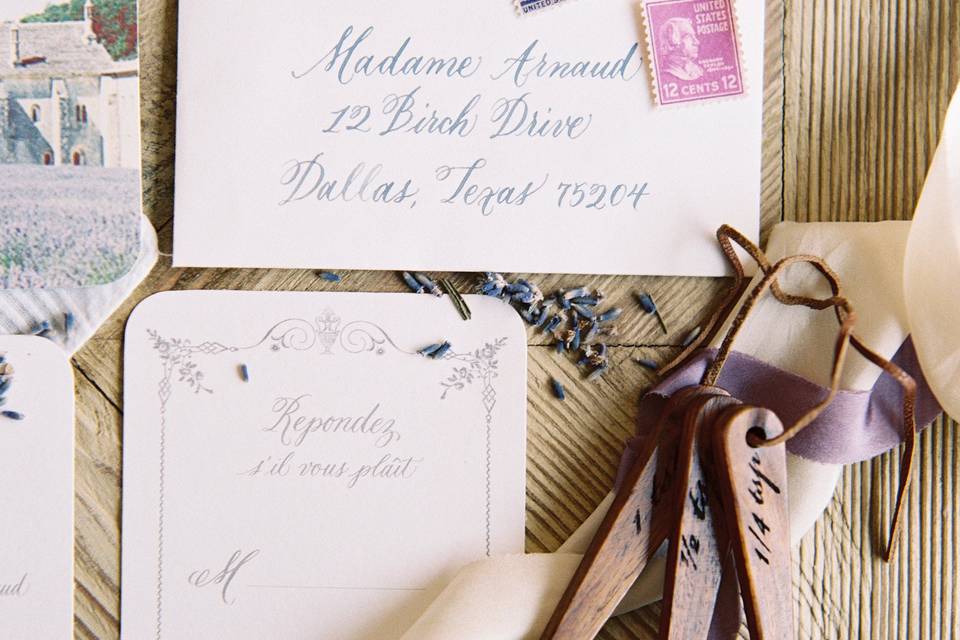 UNITED S
UNITED
STATES
POSTAGE
12 CENTS 12
Madame Arnaud
12 Birch Drive
Dallas, Texas 75204
Repondez
s'il vous plaît
M
aud
1
1/2
1/4 tsp